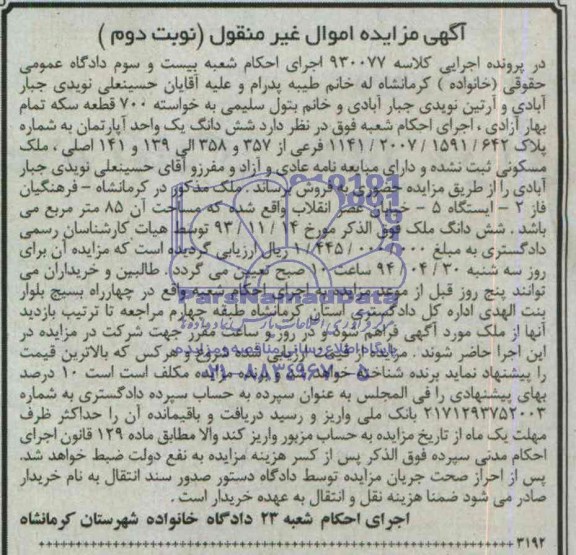 آگهی مزایده اموال غیر منقول (نوبت دوم)
در پرونده اجرایی کلاسه ۹۳۰۰۷۷ اجرای احکام شعبه بیست و سوم دادگاه عمومی
حقوقی (خانواده) کرمانشاه له خانم طیبه پدرام و علیه آقایان حسینعلی نویدی جبار
آبادی و آرتین نویدی جبار آبادی و خانم بتول سلیمی به خواسته ۷۰۰ قطعه سکه تمام
بهار آزادی ، اجرای احکام شعبه فوق در نظر دارد شش دانگ یک واحد آپارتمان به شماره
پلاک ۶۴۲ / ۱۵۹۱ / ۲۰۰۷ / ۱۱۴۱ فرعی از ۳۵۷ و ۳۵۸ الی ۱۳۹ و ۱۴۱ اصلی ، ملک
مسکونی ثبت نشده و دارای مبایعه نامه عادی و آزاد و مفرزو آقای حسینعلی نویدی جبار
آبادی را از طریق مزایده حضوری به فروش برساند ، ملک مذکور در کرمانشاه – فرهنگیان
فاز ۲ – ایستگاه ۵ – خیابان عصر انقلاب واقع شده که مساحت آن ۸۵ متر مربع می
باشد . شش دانگ ملک فوق الذکر مورخ ۱۴ / ۱۱ / ۹۳ توسط هیات کارشناسان رسمی
دادگستری به مبلغ ۱/۴۴۵/۰۰۰/۰۰۰ ریال ارزیابی گردیده است که مزایده آن برای
روز سه شنبه ۳۰ / ۰۴ / ۹۴ ساعت صبح تعیین می گردد . طالبین و خریداران می
توانند پنج روز قبل از موعد مزایده به اجرای احکام شعبه واقع در چهارراه بسیج بلوار
بنت الهدی اداره کل دادگستری استان کرمانشاه طبقه چهارم مراجعه تا ترتیب بازدید
آنها از ملک مورد آگهی فراهم شود و در روز و ساعت مقرر جهت شرکت در مزایده در
این اجرا حاضر شوند . مزایده از قیمت ارزیابی شده شروع و هرکس که بالاترین قیمت
را پیشنهاد نماید برنده شناخته خواهد شد و برنده مزایده مکلف است است ۱۰ درصد
بهای پیشنهادی را فی المجلس به عنوان سپرده به حساب سپرده دادگستری به شماره
۲۱۷۱۲۹۳۷۵۲۰۰۳ بانک ملی واریز و رسید دریافت و باقیمانده آن را حداکثر ظرف
مهلت یک ماه از تاریخ مزایده به حساب مزبور واریز کند والا مطابق ماده ۱۲۹ قانون اجرای
احکام مدنی سپرده فوق الذکر پس از کسر هزینه مزایده به نفع دولت ضبط خواهد شد.
پس از احراز صحت جریان مزایده توسط دادگاه دستور صدور سند انتقال به نام خریدار
صادر می شود ضمنا هزینه نقل و انتقال به عهده خریدار است .
اجرای احکام شعبه ۲۳ دادگاه خانواده شهرستان کرمانشاه
۳۱۹۲
ParsNamadData
پایگاه اطلاع رسانی مناقصه و مزایده
۰۲۱-۸۸۳۴۹۶۷۰-۵